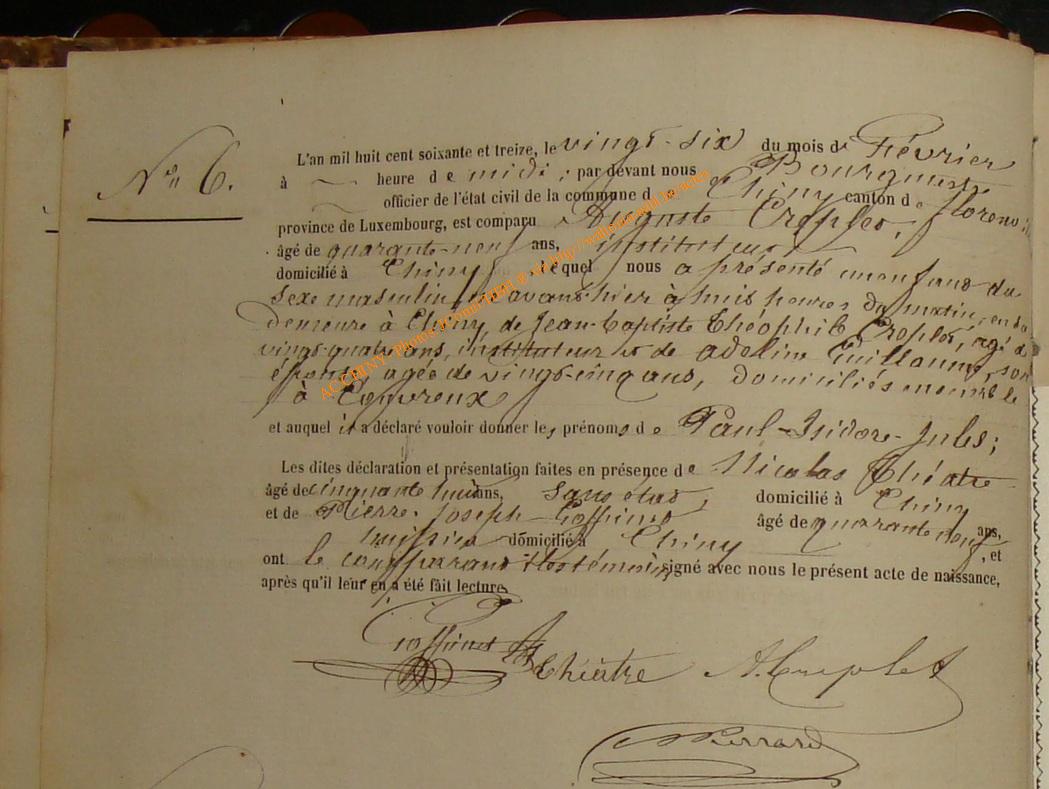 No 6.
L'an mil huit cent soixante et treize, le vingt-six du mois de Février
à heure de midi, par devant nous Bourgmestre
officier de l'état civil de la commune de Chiny canton de Florenville
province de Luxembourg, est comparu Auguste Creplet,
âgé de quarante-neuf ans, instituteur,
domicilié à Chiny lequel nous a présenté un enfant du
sexe masculin, né avant hier à huit heures du matin, en sa
demeure à Chiny, de Jean-baptiste Théophile Creplet, âgé de
vingt-quatre ans, instituteur et de adeline Guillaume, son
épouse, agée de vingt-cinq ans, domiciliés ensemble
à
et auquel il a déclaré vouloir donner les prénoms de Paul-Isidore-Jules;
Les dites déclaration et présentation faites en présence de Nicolas Théâtre
âgé de cinquante huit ans, sans état, domicilié à Chiny
et de Pierre-Joseph Goffinet âgé de quarante neuf ans,
huissier domicilié à Chiny, et
ont le comparant et les témoins, signé avec nous le présent acte de naissance,
après qu'il leur en a été fait lecture.
Goffinet Théâtre A. Creplet
Pierrard